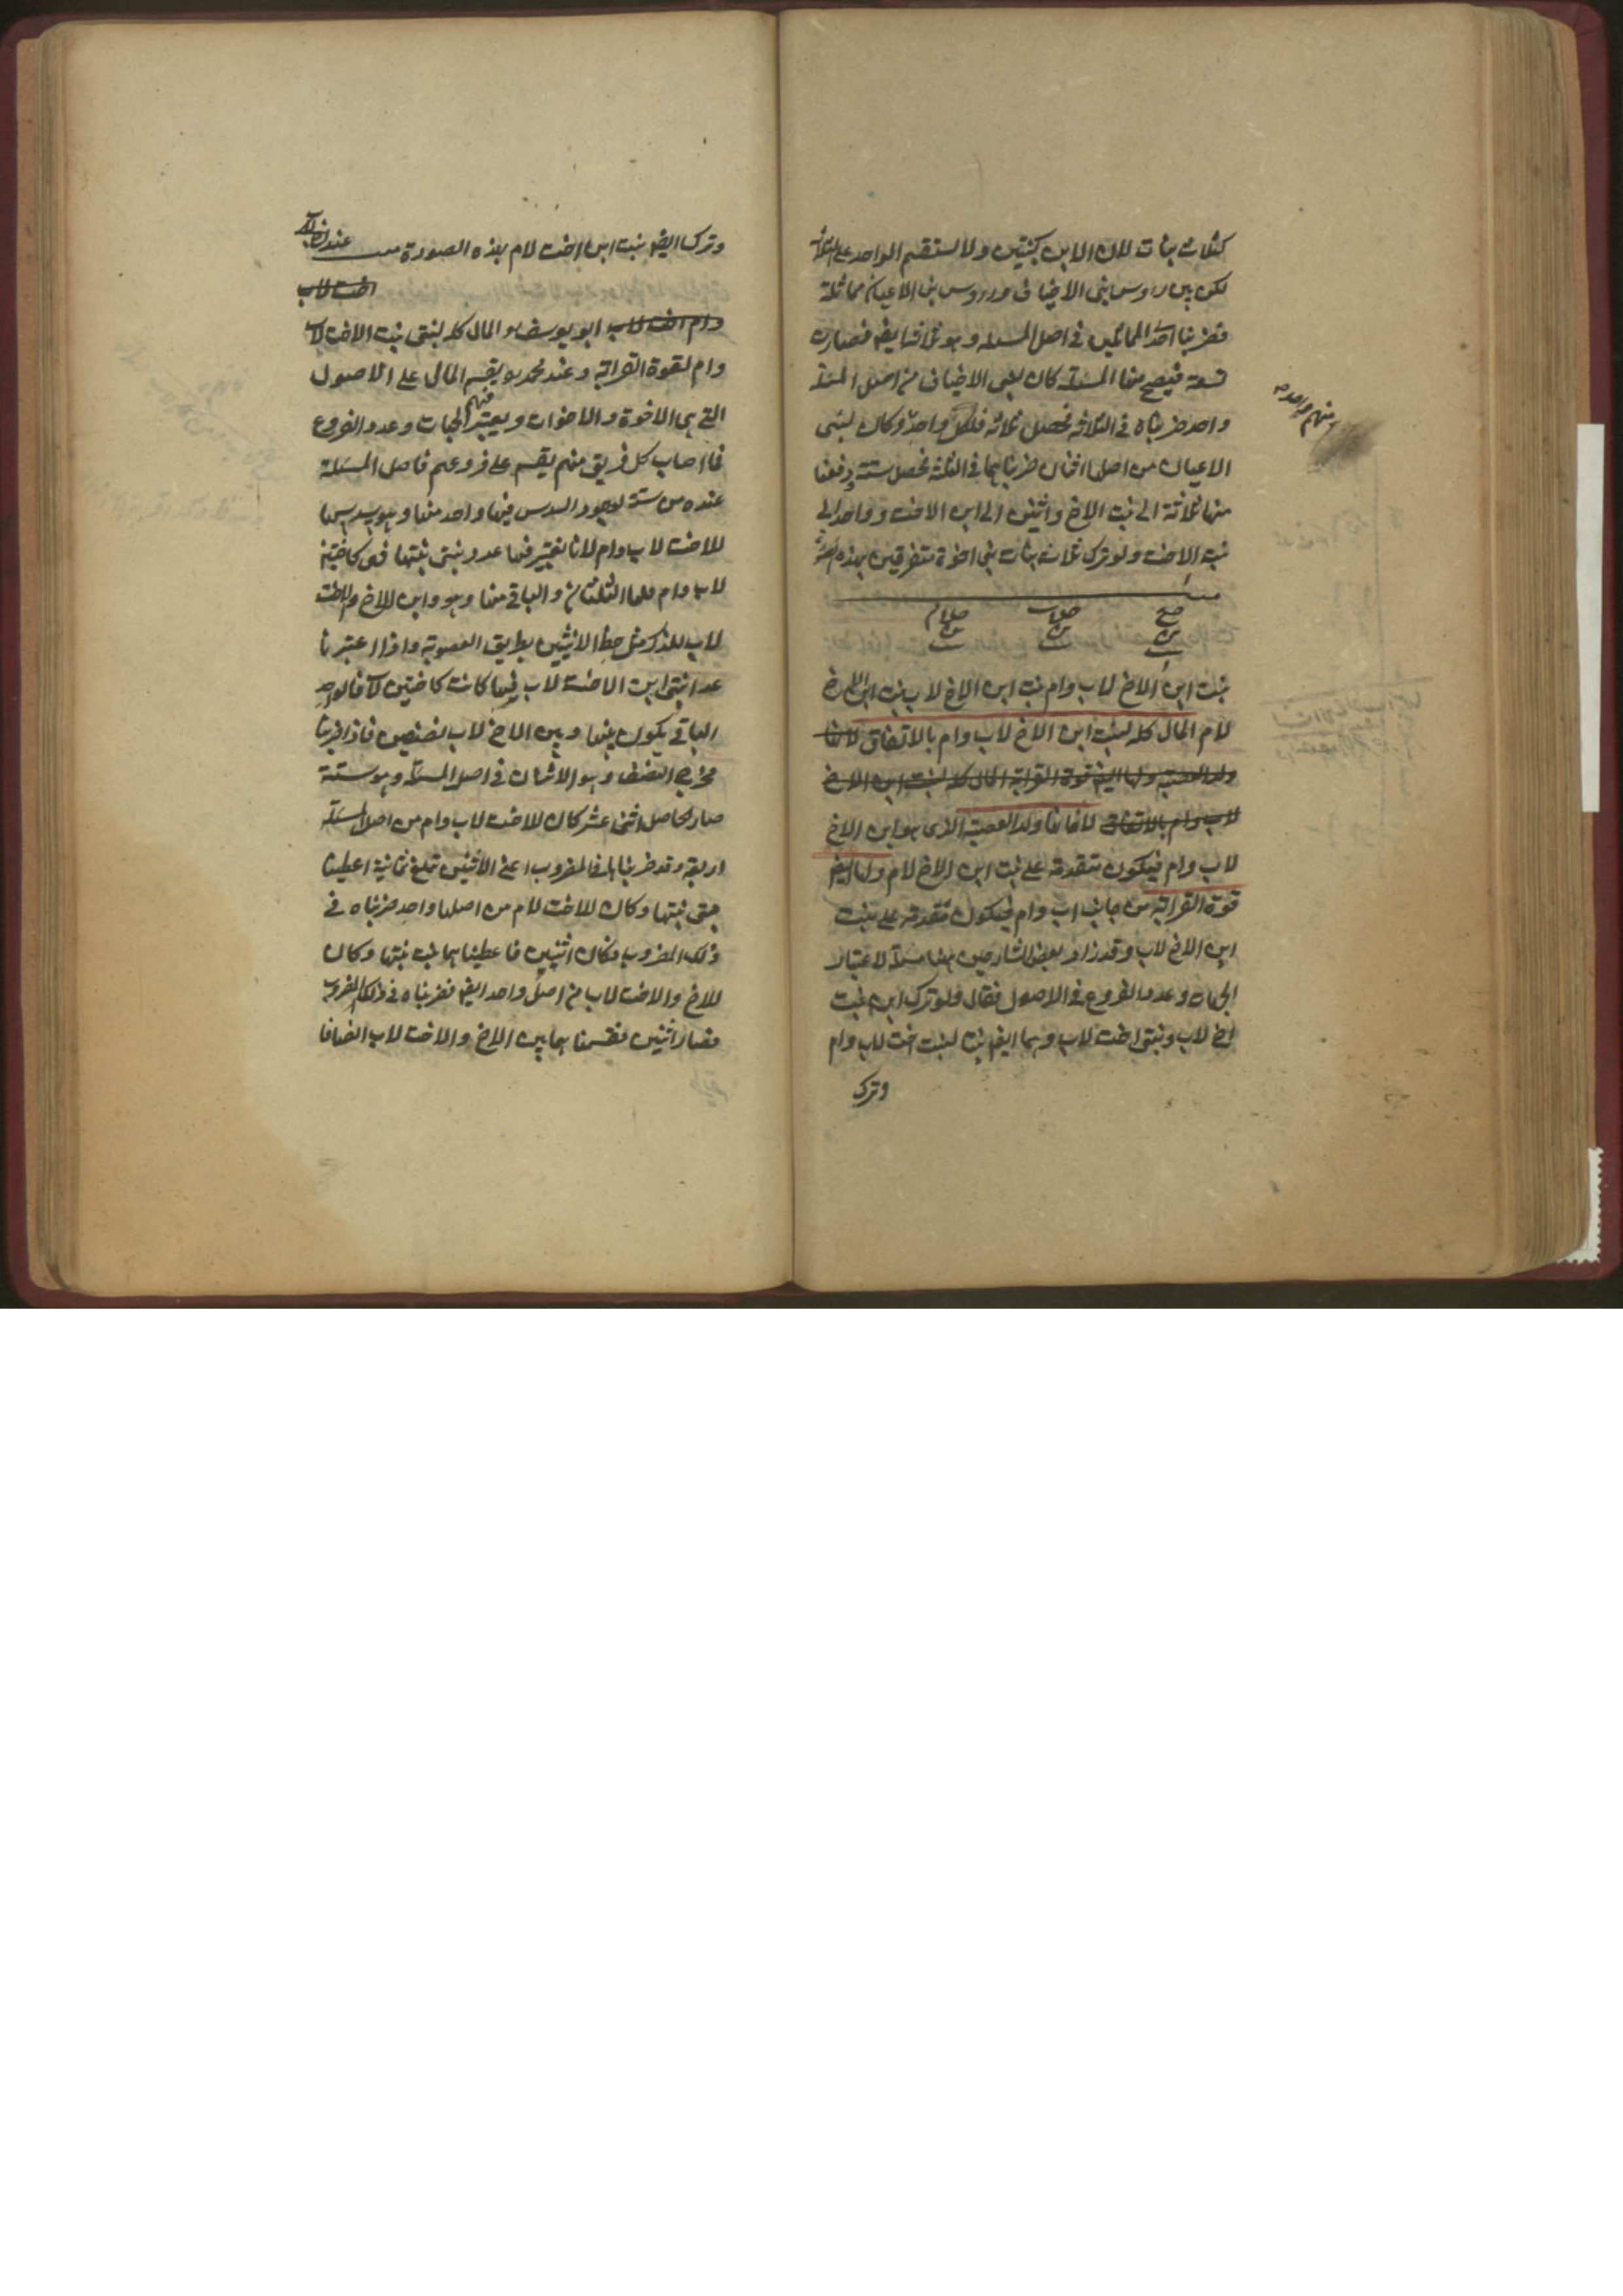 كثلاث بنات لان الابن كبنتين ولا يستقيم الواحد على الثلاثة
لكن بين رؤس بنى الاخياف ورؤس بنى الاعيان مماثلة
فضربنا احد المماثلين فى اصل المسئلة وهو ثلاثة ايضا فصارت
تسعة فيصح منها المسئلة كان لبنى الاخياف من اصل المسئلة
واحد ضربناه فى الثلاثة فحصل ثلاثة فلكل واحد وكان لبنى
منهم واحد
الاعيان من اصلها اثنان ضربناهما فى الثلثة فحصل ستة دفعنا
منها ثلاثة الى بنت الاخ واثنين الى ابن الاخت وواحد الى
بنت الاخت ولو ترك ثلاث بنات بنى اخوة متفرقين بهذه الصورة
بنت ابن الاخ لاب وام بنت ابن الاخ لاب بنت ابن الاخ
لام المال كله لبنت ابن الاخ لاب وام بالاتفاق لانها
ولد العصبة ولها ايضا قوة القرابة المال كله لبنت ابن الاخ
لاب وام بالاتفاق لانها ولد العصبة الذى هو ابن الاخ
لاب وام فيكون متقدمة على بنت ابن الاخ لام ولها ايضا
قوة القرابة من جانب اب وام فيكون متقدمة على بنت
ابن الاخ لاب وقد زاد بعض الشارحين ههنا مسئلة لاعتبار
الجهات وعدد الفروع فى الاصول فقال ولو ترك ابن بنت
اخ لاب وبنتى اخت لاب وهما ايضا بنتا لبنت اخت لاب وام
وترك
وترك ايضا بنت ابن اخت لام بهذه الصورة عند
اخت لاب
وام اخت لاب ابو يوسف المال كله لبنتى بنت الاخت لاب
وام لقوة القرابة وعند محمد يقسم المال على الاصول
التى هى الاخوة والاخوات ويعتبر فيهم الجهات وعدد الفروع
فما اصاب كل فريق منهم يقسم على فروعهم فاصل المسئلة
عنده من ستة لوجود السدس فيها واحد منها وهو سدسها
للاخت لاب وام لانا نعتبر فيها عدد بنتى بنتها فهى كاختين
لاب وام فلها الثلثان والباقى منها وهو وابن للاخ والاخت
لاب للذكر مثل حظ الانثيين بطريق العصوبة واذا اعتبرنا
عدد بنتى ابن الاخت لاب فيها كانت كاختين لاب فالواحد
الباقى يكون بينها وبين الاخ لاب نصفين فاذا ضربنا
مخرج النصف وهو الاثنان فى اصل المسئلة وهو ستة
صار الحاصل اثنى عشر كان للاخت لاب وام من اصل المسئلة
اربعة وقد ضربناها فى المضروب اعنى الاثنين تبلغ ثمانية اعطينا
بنتى بنتها وكان للاخت لام من اصلها واحد ضربناه فى
ذلك المضروب فكان اثنين فاعطيناهما بنت بنتها وكان
للاخ والاخت لاب من اصل واحد ايضا فضربناه فى ذلك المضروب
فصار اثنين فقسمناهما بين الاخ والاخت لاب انصافا